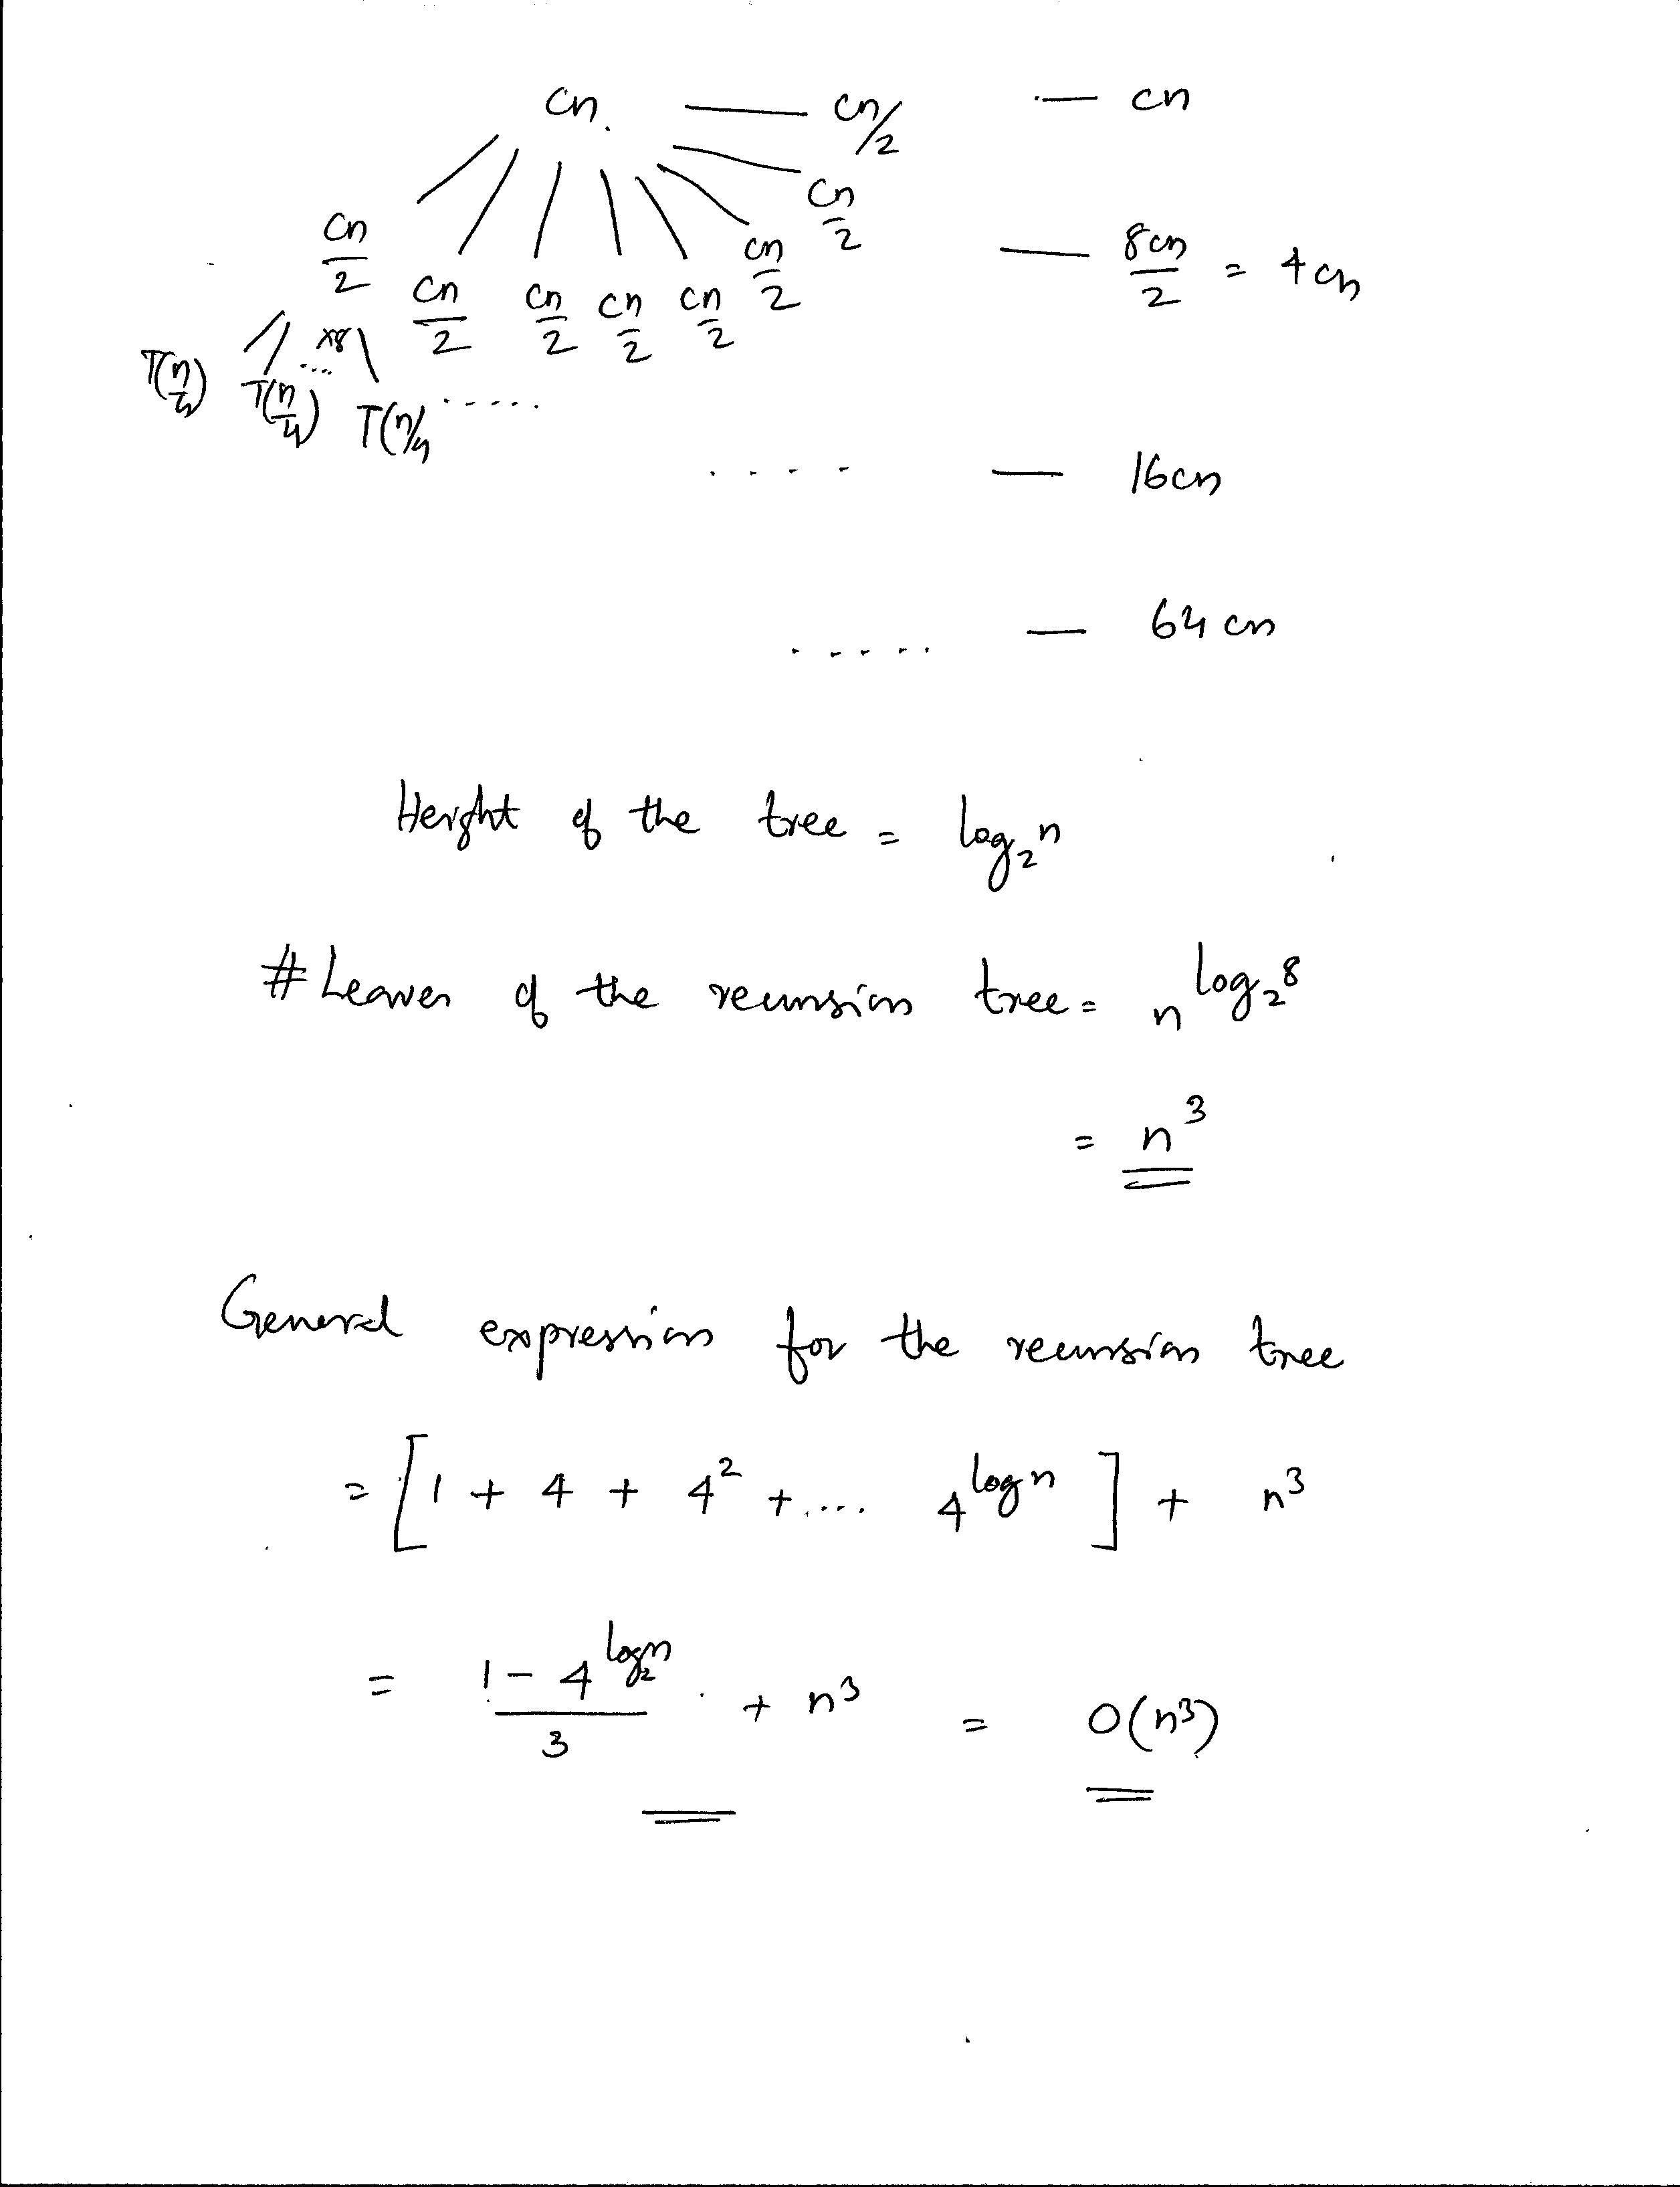 cn. — cn/2 — cn
cn/2 cn/2 cn/2 cn/2 cn/2 cn/2 cn/2 — 8cn/2 = 4cn
T(n/4) T(n/4) ... x8 T(n/4 .....
.... — 16cn
..... — 64cn
Height of the tree = log₂n
# Leaves of the recursion tree = n^log₂8
= n³
General expression for the recursion tree
= [1 + 4 + 4² + .... 4^log n] + n³
= (1 - 4^log₂n)/3 + n³ = O(n³)